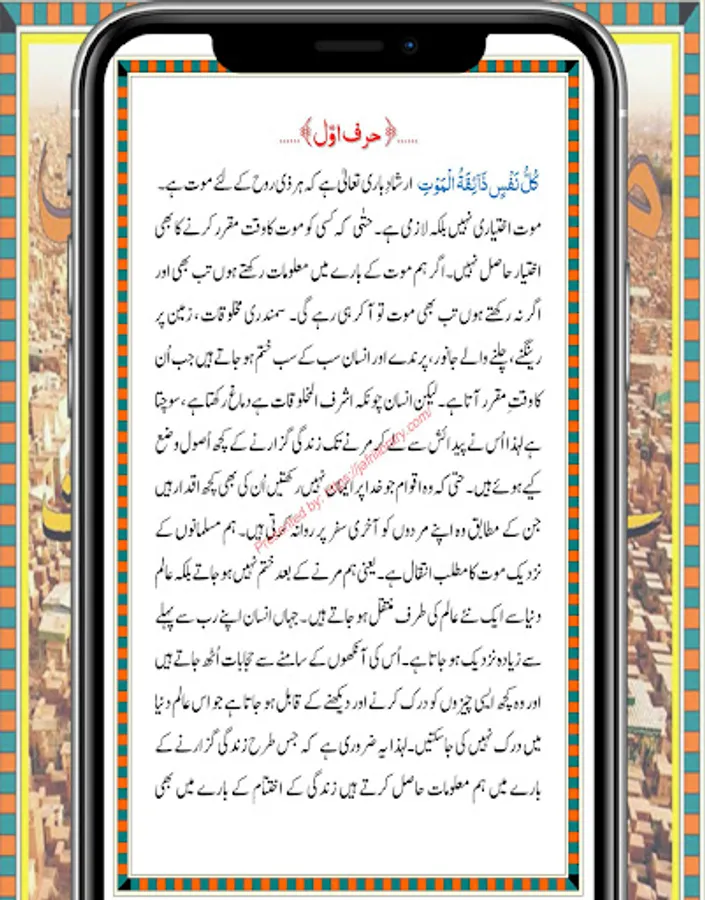 ......﴿ حرف اوّل ﴾......
كُلُّ نَفْسٍ ذَآئِقَةُ الْمَوْتِ ارشادِ باری تعالیٰ ہے کہ ہر ذی روح کے لئے موت ہے۔
موت اختیاری نہیں بلکہ لازمی ہے۔ حتٰی کہ کسی کو موت کا وقت مقرر کرنے کا بھی
اختیار حاصل نہیں۔ اگر ہم موت کے بارے میں معلومات رکھتے ہوں تب بھی اور
اگر نہ رکھتے ہوں تب بھی موت تو آ کر ہی رہے گی۔ سمندری مخلوقات، زمین پر
رینگنے، چلنے والے جانور، پرندے اور انسان سب کے سب ختم ہو جاتے ہیں جب اُن
کا وقتِ مقرر آتا ہے۔ لیکن انسان چونکہ اشرف المخلوقات ہے دماغ رکھتا ہے، سوچتا
ہے لہٰذا اُس نے پیدائش سے لے کر مرنے تک زندگی گزارنے کے کچھ اُصول وضع
کیے ہوئے ہیں۔ حتی کہ وہ اقوام جو خدا پر ایمان نہیں رکھتیں اُن کی بھی کچھ اقدار ہیں
جن کے مطابق وہ اپنے مردوں کو آخری سفر پر روانہ کرتی ہیں۔ ہم مسلمانوں کے
نزدیک موت کا مطلب انتقال ہے۔ یعنی ہم مرنے کے بعد ختم نہیں ہو جاتے بلکہ عالم
دنیا سے ایک نئے عالم کی طرف منتقل ہو جاتے ہیں۔ جہاں انسان اپنے رب سے پہلے
سے زیادہ نزدیک ہو جاتا ہے۔ اُس کی آنکھوں کے سامنے سے حجابات اُٹھ جاتے ہیں
اور وہ کچھ ایسی چیزوں کو درک کرنے اور دیکھنے کے قابل ہو جاتا ہے جو اس عالم دنیا
میں درک نہیں کی جاسکتیں۔ لہٰذا یہ ضروری ہے کہ جس طرح زندگی گزارنے کے
بارے میں ہم معلومات حاصل کرتے ہیں زندگی کے اختتام کے بارے میں بھی
Presented by: https://jafrilibrary.com/